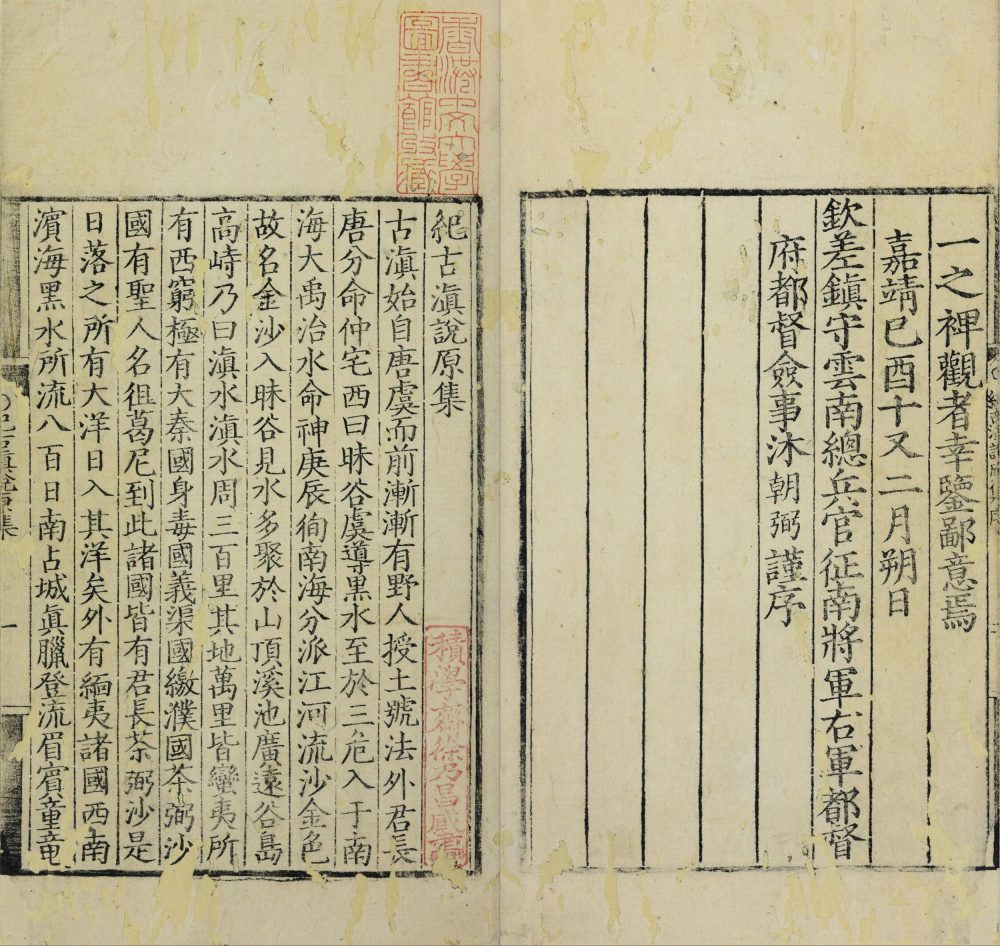 一之裨觀者幸鑒鄙意焉
嘉靖己酉十又二月朔日
欽差鎮守雲南總兵官征南將軍右軍都督
府都督僉事沐朝弼謹序
紀古滇說原集
古滇始自唐虞而前漸漸有野人授土號法外君長
唐分命仲宅西曰昧谷虞導黑水至於三危入于南
海大禹治水命神庚辰徇南海分派江河流沙金色
故名金沙入昧谷見水多聚於山頂溪池廣遠谷島
高峙乃曰滇水滇水周三百里其地萬里皆蠻夷所
有西窮極有大秦國身毒國義渠國繳濮國茶弼沙
國有聖人名徂葛尼到此諸國皆有君長茶弼沙是
日落之所有大洋日入其洋矣外有緬夷諸國西南
濵海黑水所流八百日南占城眞臘登流眉賓童竜
紀古滇說原集
一
香港中文大學
圖書館收藏
積學齋徐乃昌藏書